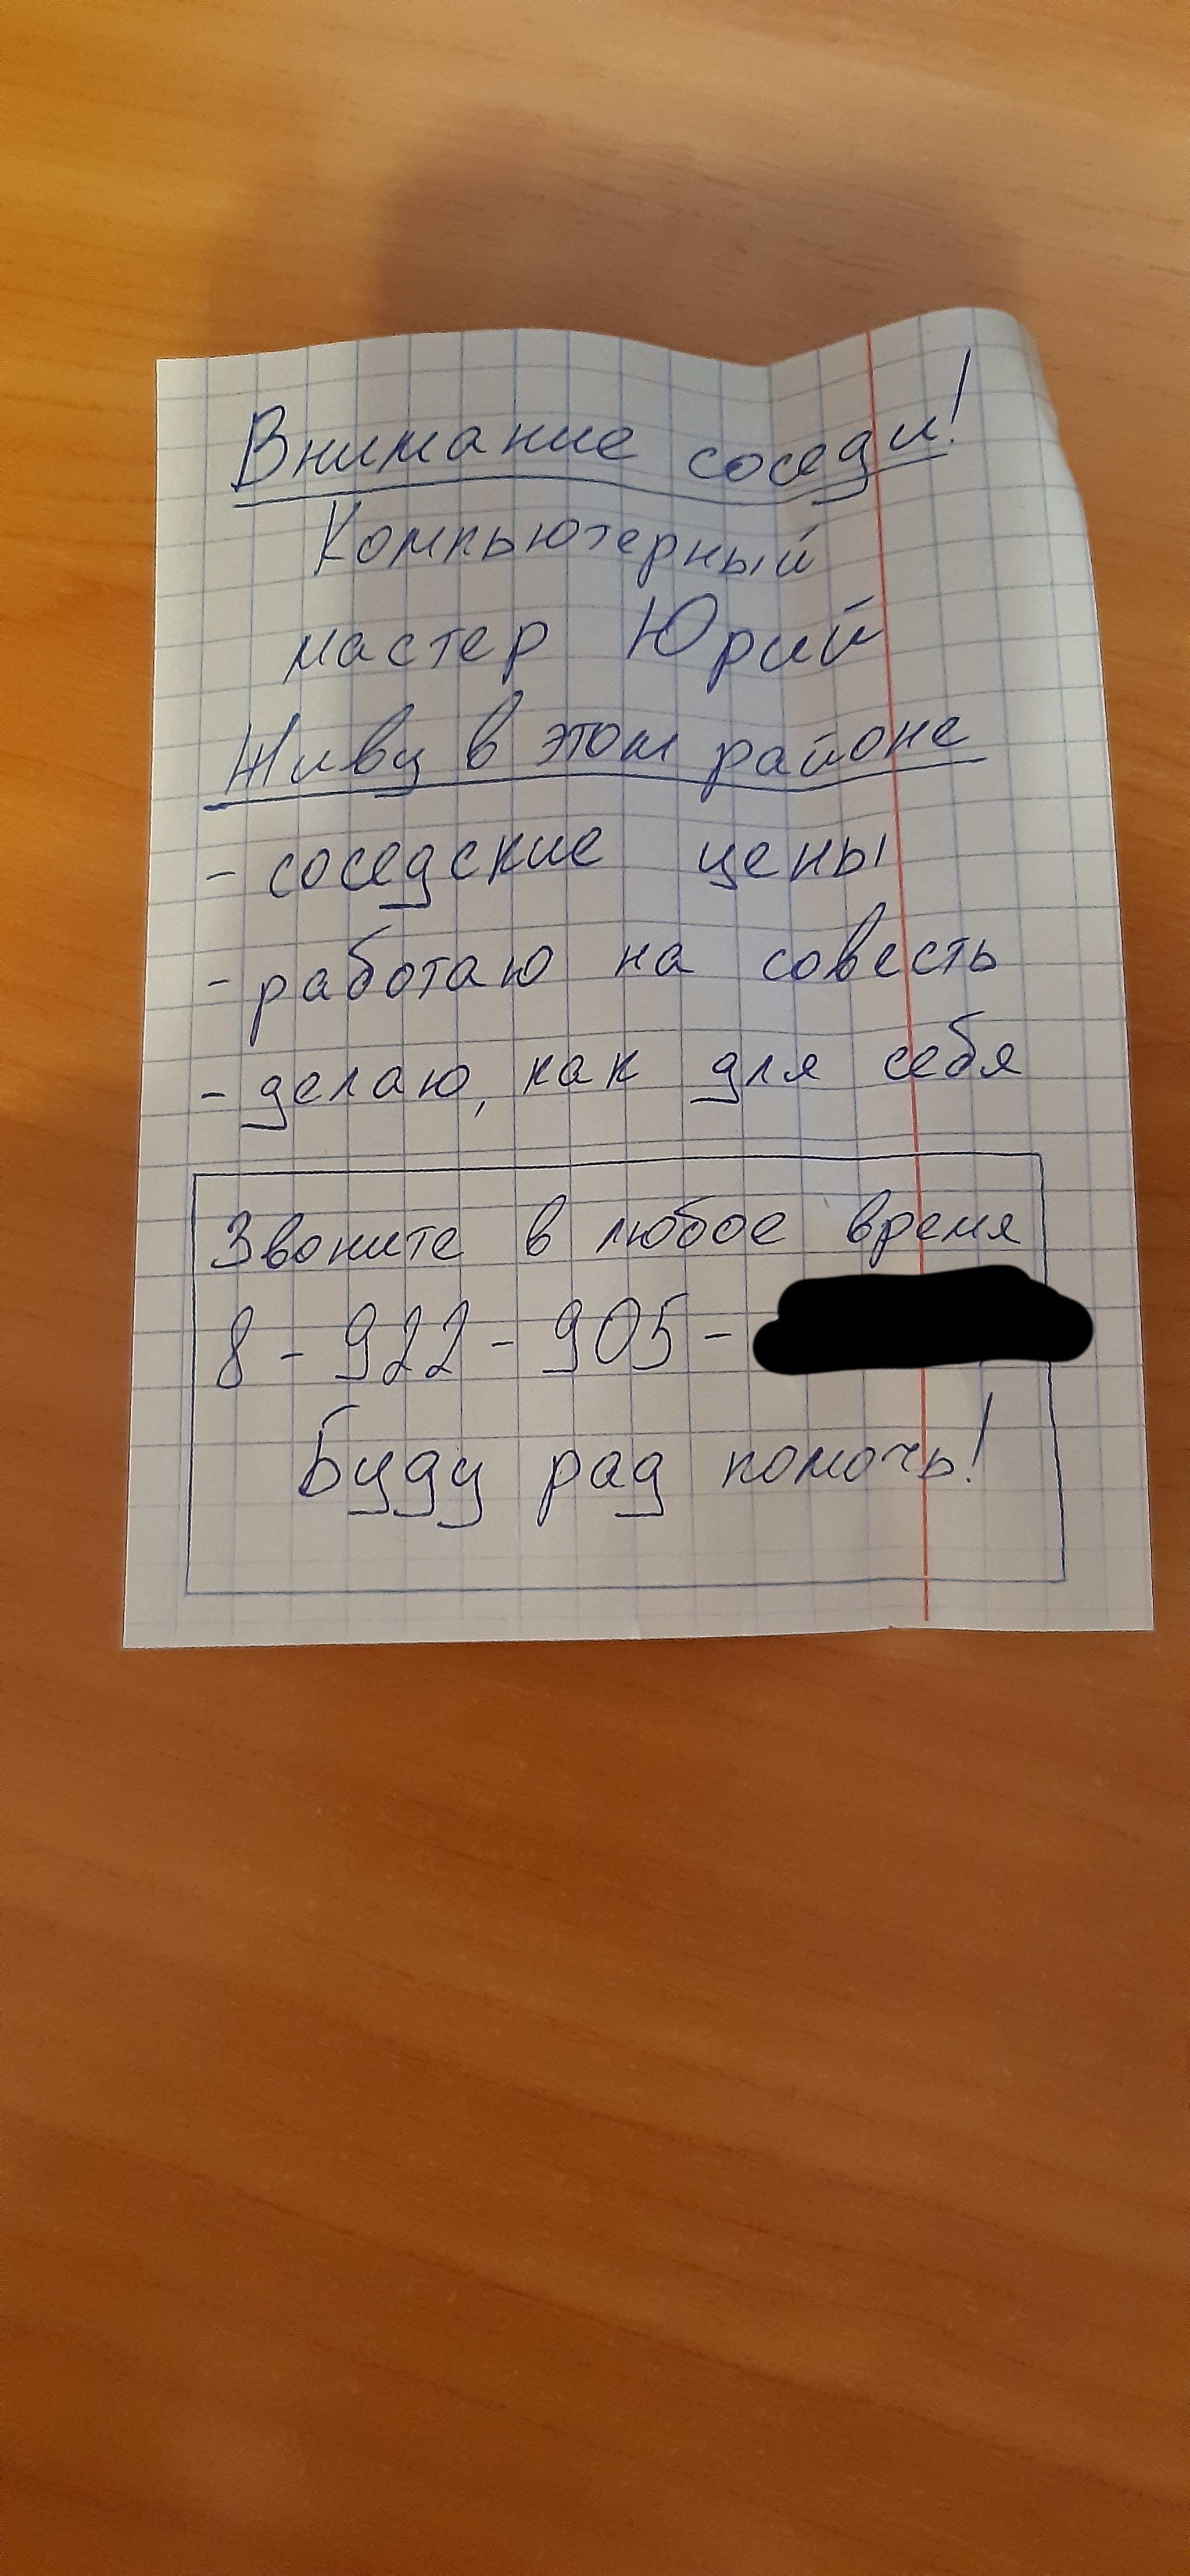 Внимание соседи!
Компьютерный
мастер Юрий
Живу в этом районе
- соседские цены
- работаю на совесть
- делаю, как для себя
Звоните в любое время
8 - 922 - 905 -
Буду рад помочь!